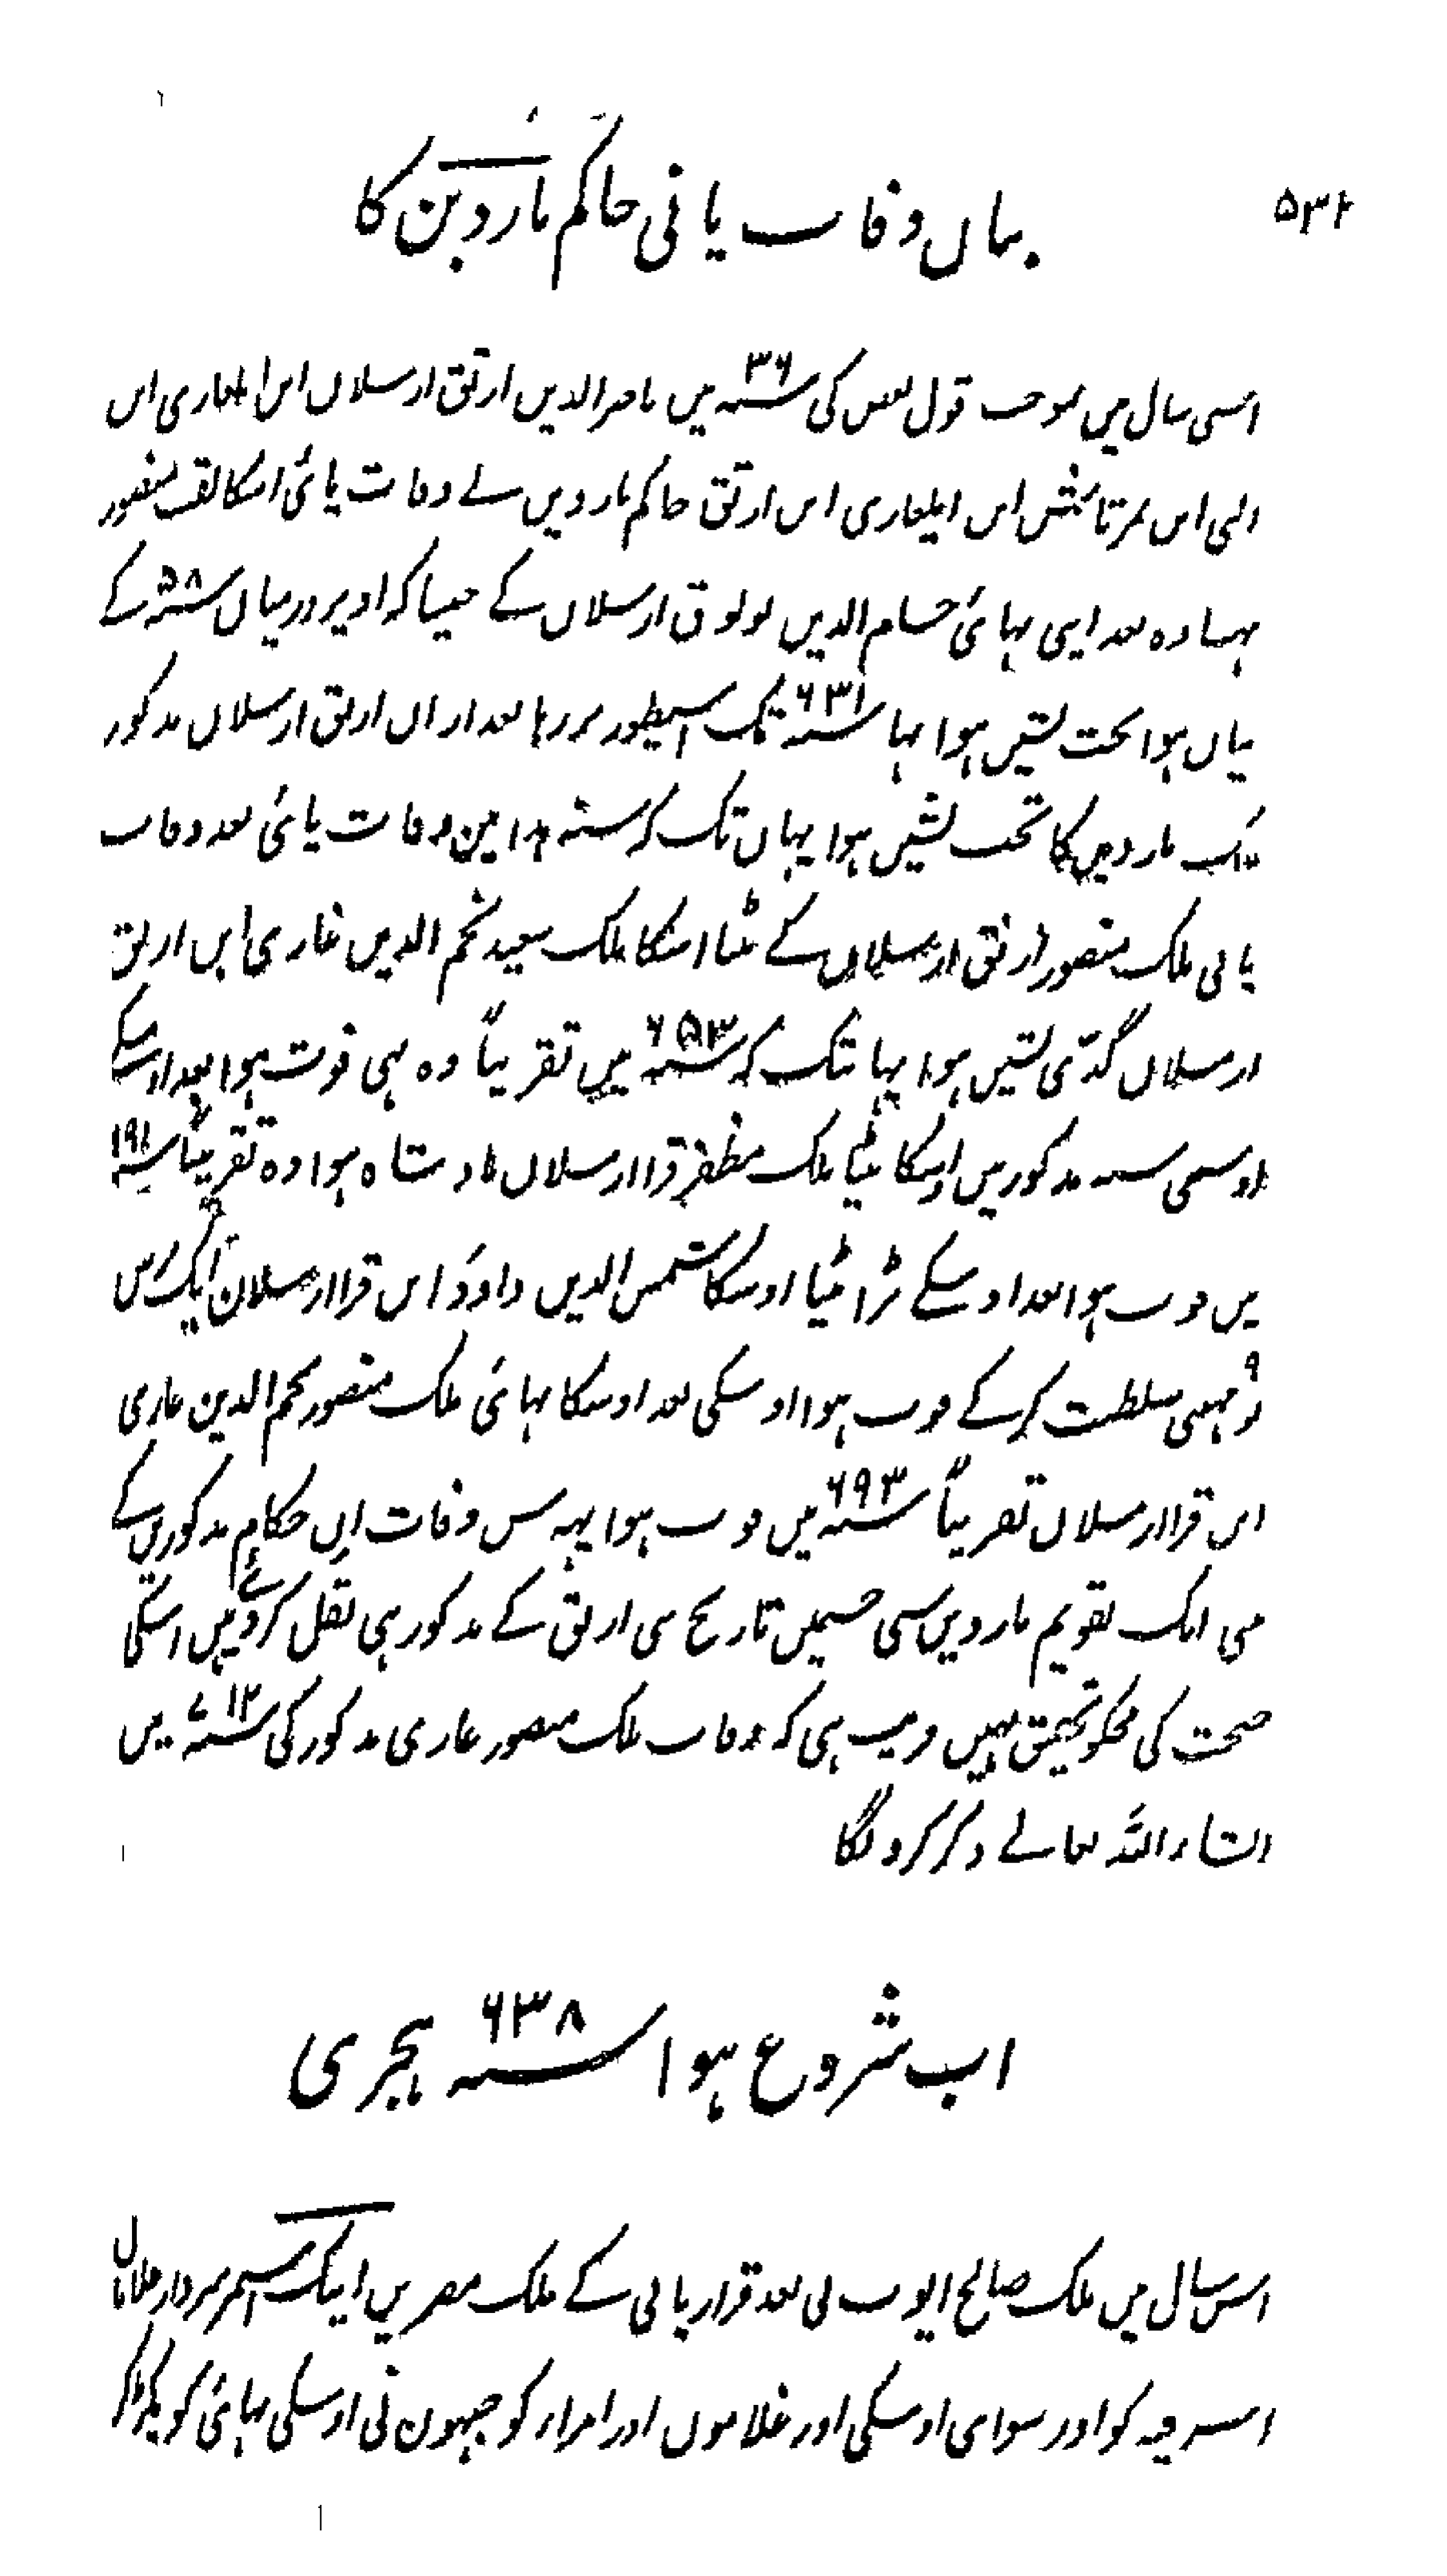 ۵۳۲
بیان وفات پانی حاکم ماردین کا
اسی سال میں بموجب قول بعض کی سنہ ۳۶ میں ناصر الدین ارتق ارسلان ابن ایلغازی ابن
البی ابن تمرتاش ابن ایلغازی ابن ارتق حاکم ماردین نے وفات پائی اسکا لقب منصور
تہا وہ بعد اپنی بہائی حسام الدین لولوق ارسلان کے جیسا کہ اوپر درمیان سنہ ۵۸ کے
بیان ہوا تخت نشین ہوا تہا سنہ ۶۳۱ تک اسیطور پر رہا بعد ازان ارتق ارسلان مذکور
ملک ماردین کا تخت نشین ہوا یہاں تک کہ سنہ ہذا مین وفات پائی بعد وفات
پانی ملک منصور ارتق ارسلان کے بیٹا اسکا ملک سعید نجم الدین غازی ابن ارتق
ارسلان گدّی نشین ہوا یہانتک کہ سنہ ۶۵۳ میں تقریباً وہ بہی فوت ہوا بعد اسکے
اوسی سنہ مذکور میں اوسکا بیٹا ملک مظفر قرا ارسلان بادشاہ ہوا وہ تقریباً سنہ ۶۹۱
میں فوت ہوا بعد اوسکے بڑا بیٹا اوسکا شمس الدین داؤد ابن قرا ارسلان ایک برس
۹ نو مہینی سلطنت کر کے فوت ہوا اوسکی بعد اوسکا بہائی ملک منصور نجم الدین غازی
ابن قرا ارسلان تقریباً سنہ ۶۹۳ میں فوت ہوا یہہ سن وفات این حکام مذکورین کے
میں ایک تقویم ماردین سی جسمیں تاریخ بنی ارتق کے مذکور ہی نقل کردئے ہیں اسکی
صحت کی مجکو تحقیق نہیں قریب ہی کہ وفات ملک منصور غازی مذکور کی سنہ ۷۱۲ میں
انشاء اللہ تعالے ذکر کرونگا
اب شروع ہوا سنہ ۶۳۸ ہجری
اس سال میں ملک صالح ایوب نی بعد قرار پانی کے ملک مصر میں ایبک اسمر سردار غلامان
اسرفیہ کو اور سوای اوسکی اور غلاموں اور امراء کو جنہون نی اوسکی بہائی کو پکڑ کر